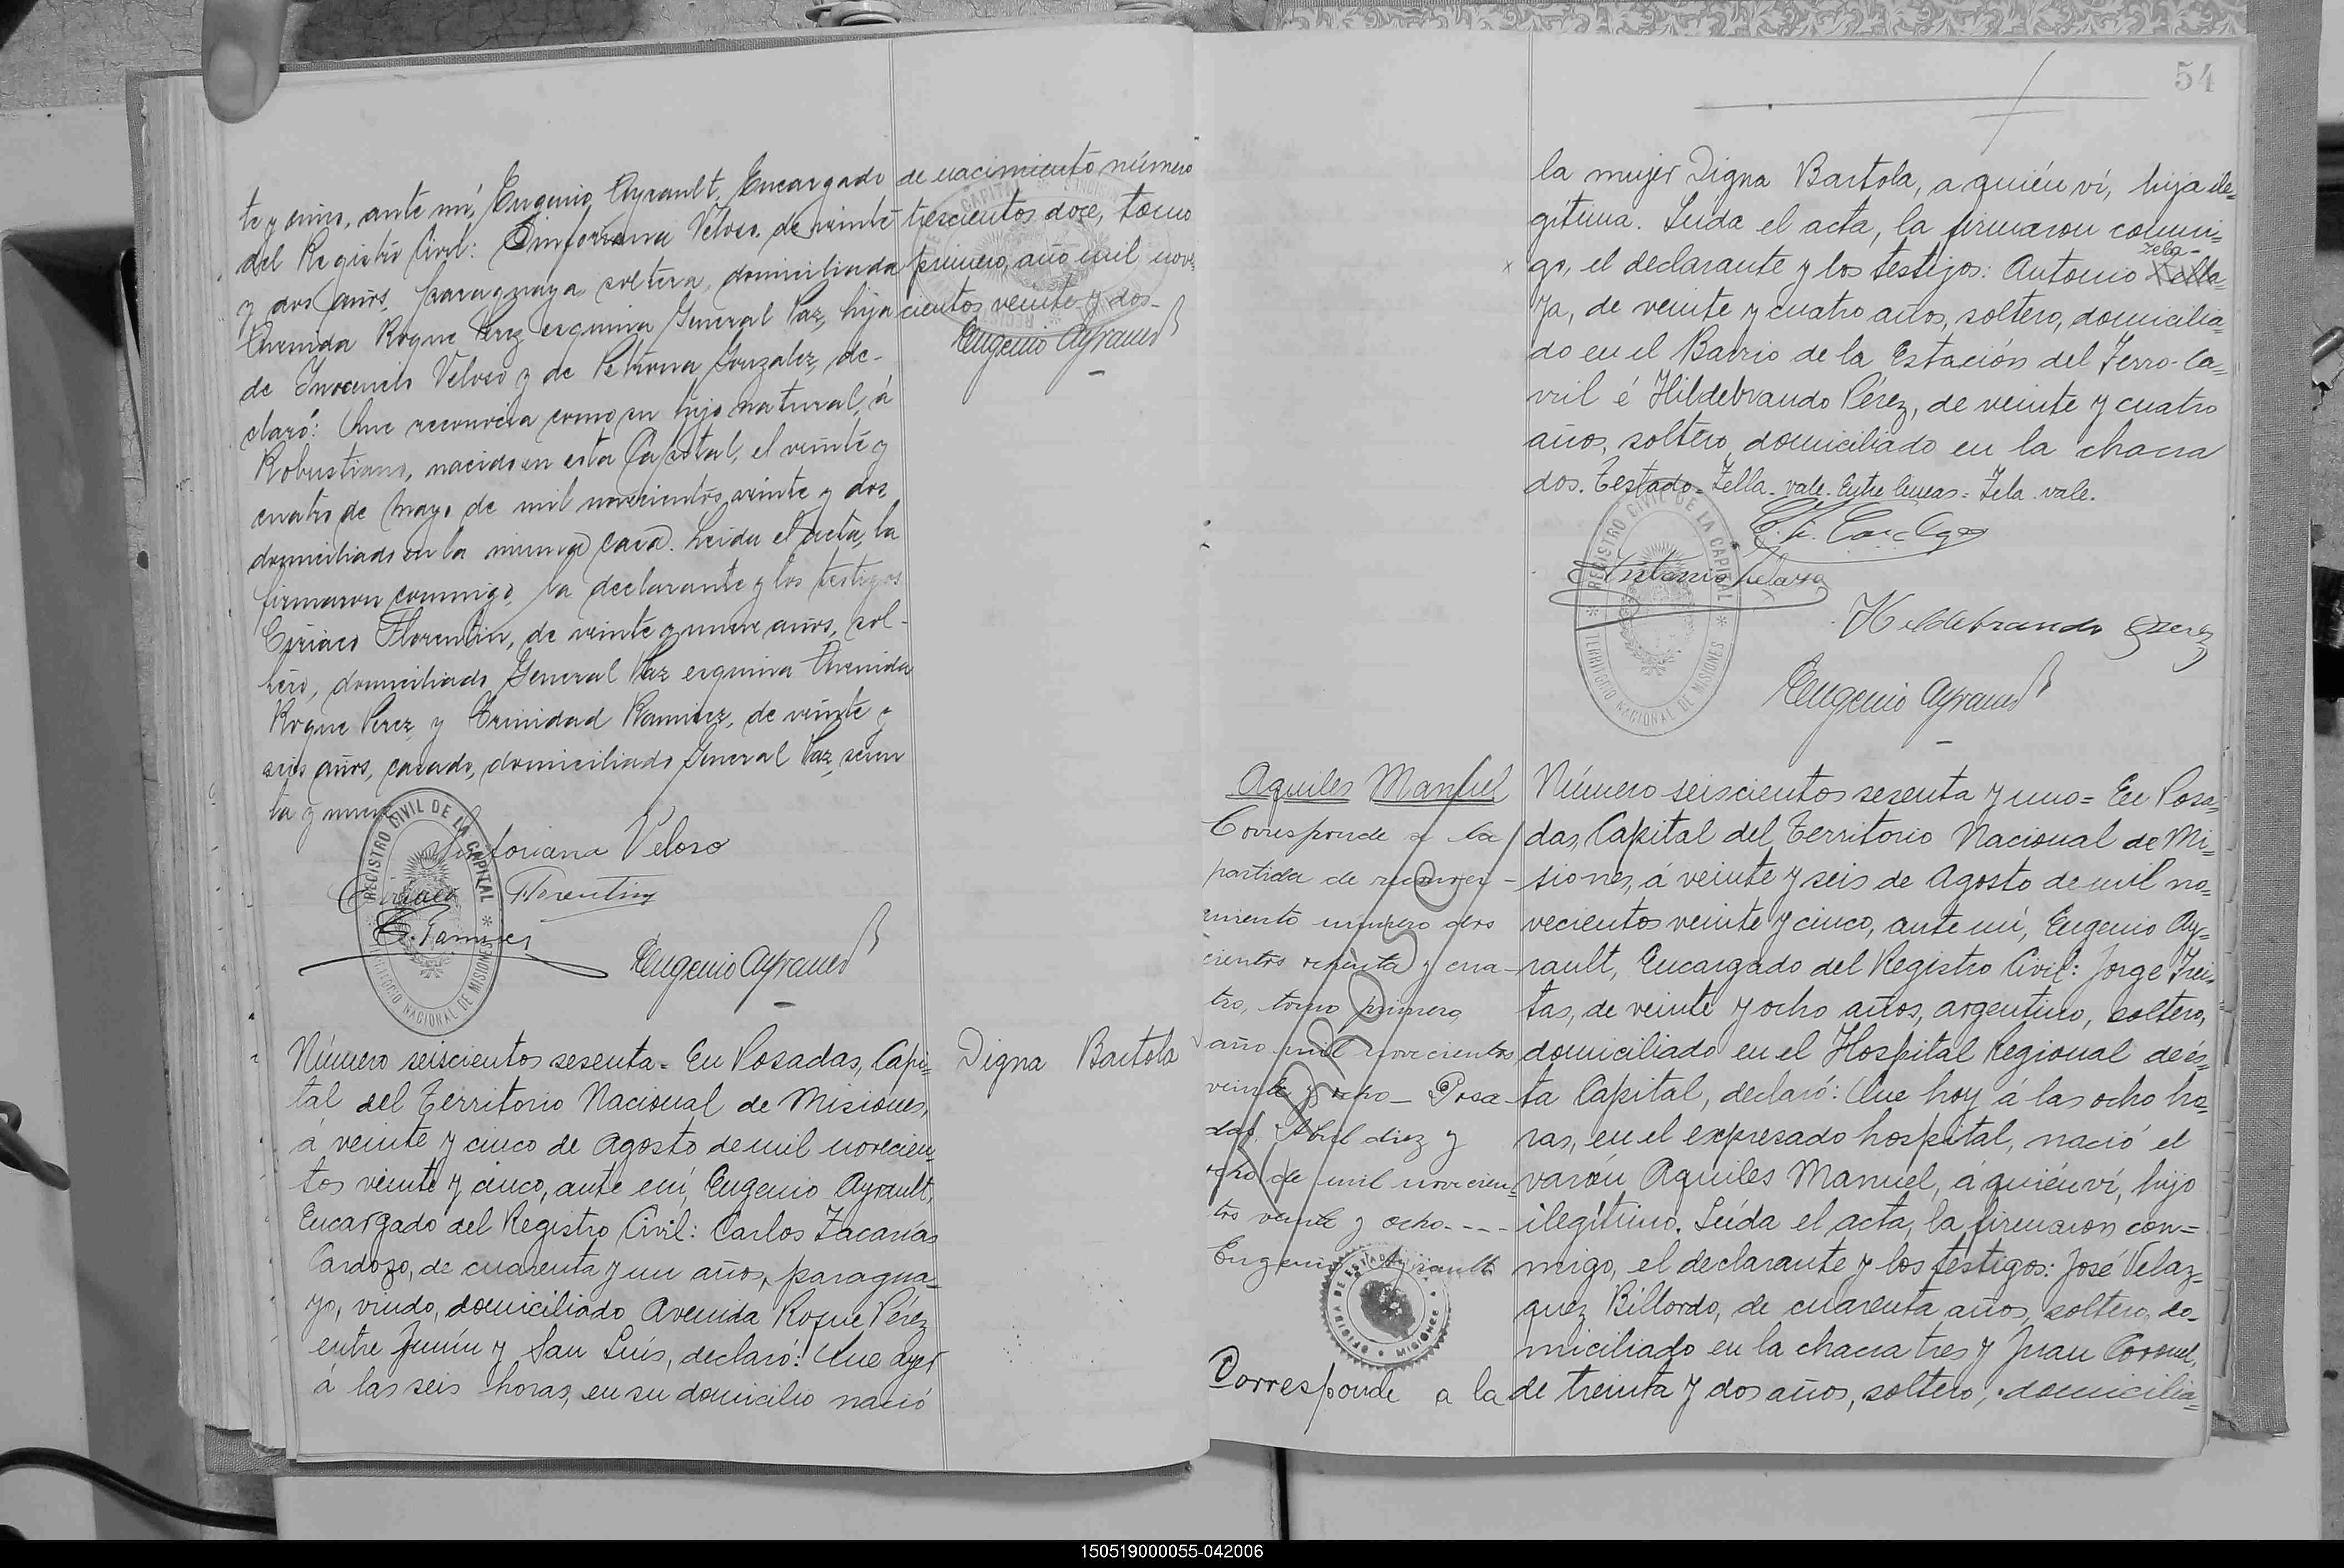 te y cinco, ante mí, Eugenio Ayrault, Encargado
del Registro Civil: Sinforiana Veloso, de veinte
y dos años, paraguaya, soltera, domiciliada
Avenida Roque Perez esquina General Paz, hija
de Inocencio Veloso y de Petrona Gonzalez, de-
claró: Que reconocia como su hijo natural, á
Robustiano, nacido en esta Capital, el veinte y
cuatro de Mayo de mil novecientos veinte y dos,
domiciliado en la misma casa. Leida el acta, la
firmaron conmigo, la declarante y los testigos
Ciriaco Florentin, de veinte y nueve años, sol-
tero, domiciliado General Paz esquina Avenida
Roque Perez, y Trinidad Ramirez, de veinte y
seis años, casado, domiciliado General Paz, sesen
ta y nueve
de nacimiento número
trescientos doce, tomo
primero, año mil nove-
cientos veinte y dos-
Eugenio Ayrault
Sinforiana Veloso
Ciriaco Florentin
T. Ramirez
Eugenio Ayrault
REGISTRO CIVIL DE LA CAPITAL
TERRITORIO NACIONAL DE MISIONES
Digna Bartola
Número seiscientos sesenta = En Posadas, Capi=
tal del Territorio Nacional de Misiones,
á veinte y cinco de Agosto de mil novecien=
tos veinte y cinco, ante mí, Eugenio Ayrault,
Encargado del Registro Civil: Carlos Zacarías
Cardozo, de cuarenta y un años, paragua=
yo, viudo, domiciliado Avenida Roque Pérez
entre Junín y San Luis, declaró: Que ayer
á las seis horas, en su domicilio nació
54
la mujer Digna Bartola, a quién ví, hija ile=
gítima. Leída el acta, la firmaron conmi=
go, el declarante y los testigos: Antonio Zella=
zela-
ya, de veinte y cuatro años, soltero, domicilia=
do en el Barrio de la Estación del Ferro-Ca=
rril é Hildebrando Pérez, de veinte y cuatro
años, soltero, domiciliado en la chacra
dos. Testado = Zella. vale. Entre líneas = Zela. vale.
C. Z. Cardozo
Antonio Zelaya
Hildebrando Perez
Eugenio Ayrault
REGISTRO CIVIL DE LA CAPITAL
TERRITORIO NACIONAL DE MISIONES
Aquiles Manuel
Corresponde a la
partida de reconoci-
miento número dos
cientos setenta y cua-
tro, tomo primero,
año mil novecientos
veinte y ocho- Posa-
das, Abril diez y
ocho de mil novecien-
tos veinte y ocho----
Eugenio Ayrault
MISIONES
Corresponde a la
Número seiscientos sesenta y uno = En Posa=
das, Capital del Territorio Nacional de Mi=
siones, á veinte y seis de Agosto de mil no=
vecientos veinte y cinco, ante mí, Eugenio Ay=
rault, Encargado del Registro Civil: Jorge Frei=
tas, de veinte y ocho años, argentino, soltero,
domiciliado en el Hospital Regional de és=
ta Capital, declaró: Que hoy á las ocho ho=
ras, en el expresado hospital, nació el
varón Aquiles Manuel, á quién ví, hijo
ilegítimo. Leída el acta, la firmaron con=
migo, el declarante y los testigos: José Velaz=
quez Billordo, de cuarenta años, soltero, do-
miciliado en la chacra tres y Juan Coronel,
de treinta y dos años, soltero, domicilia=
150519000055-042006